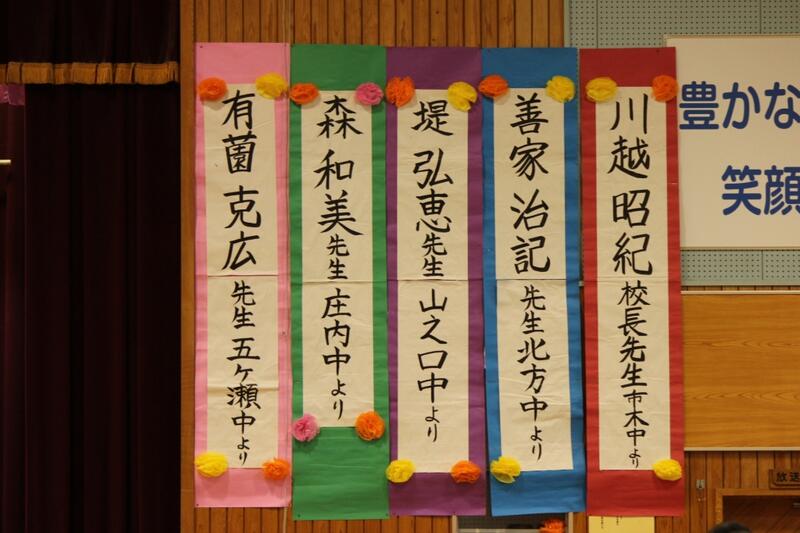 川越 昭紀 校長先生 市木中より
善家 治記 先生 北方中より
堤 弘恵 先生 山之口中より
森 和美 先生 庄内中より
有薗 克広 先生 五ヶ瀬中より
豊かな
笑顔
放送